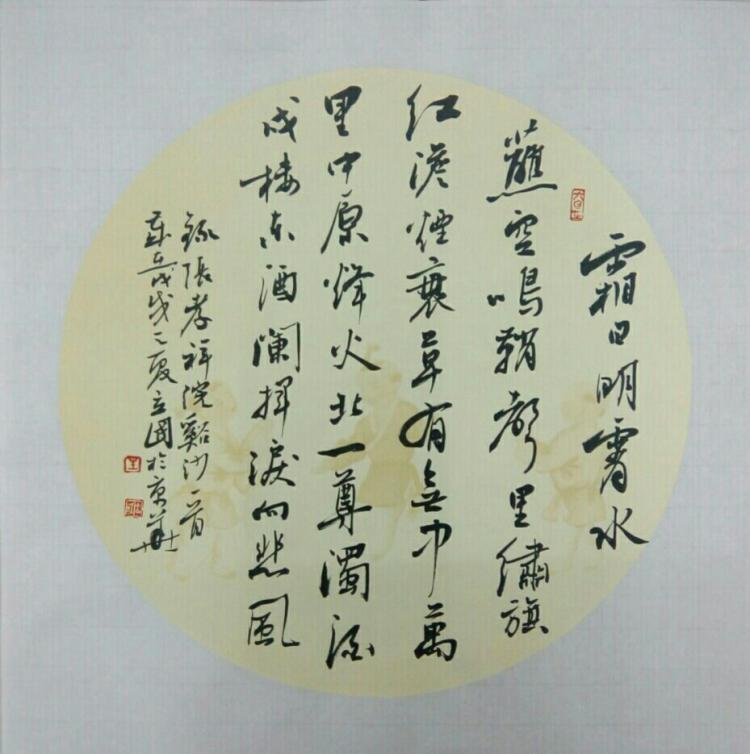 霜日明霄水
蘸空鳴鞘聲里繡旗
紅澹煙衰草有無中萬
里中原烽火北一尊濁酒
戍樓东酒瀾揮淚向悲風
錄張孝祥浣谿沙一首
歲在戊戌之夏立國於京華